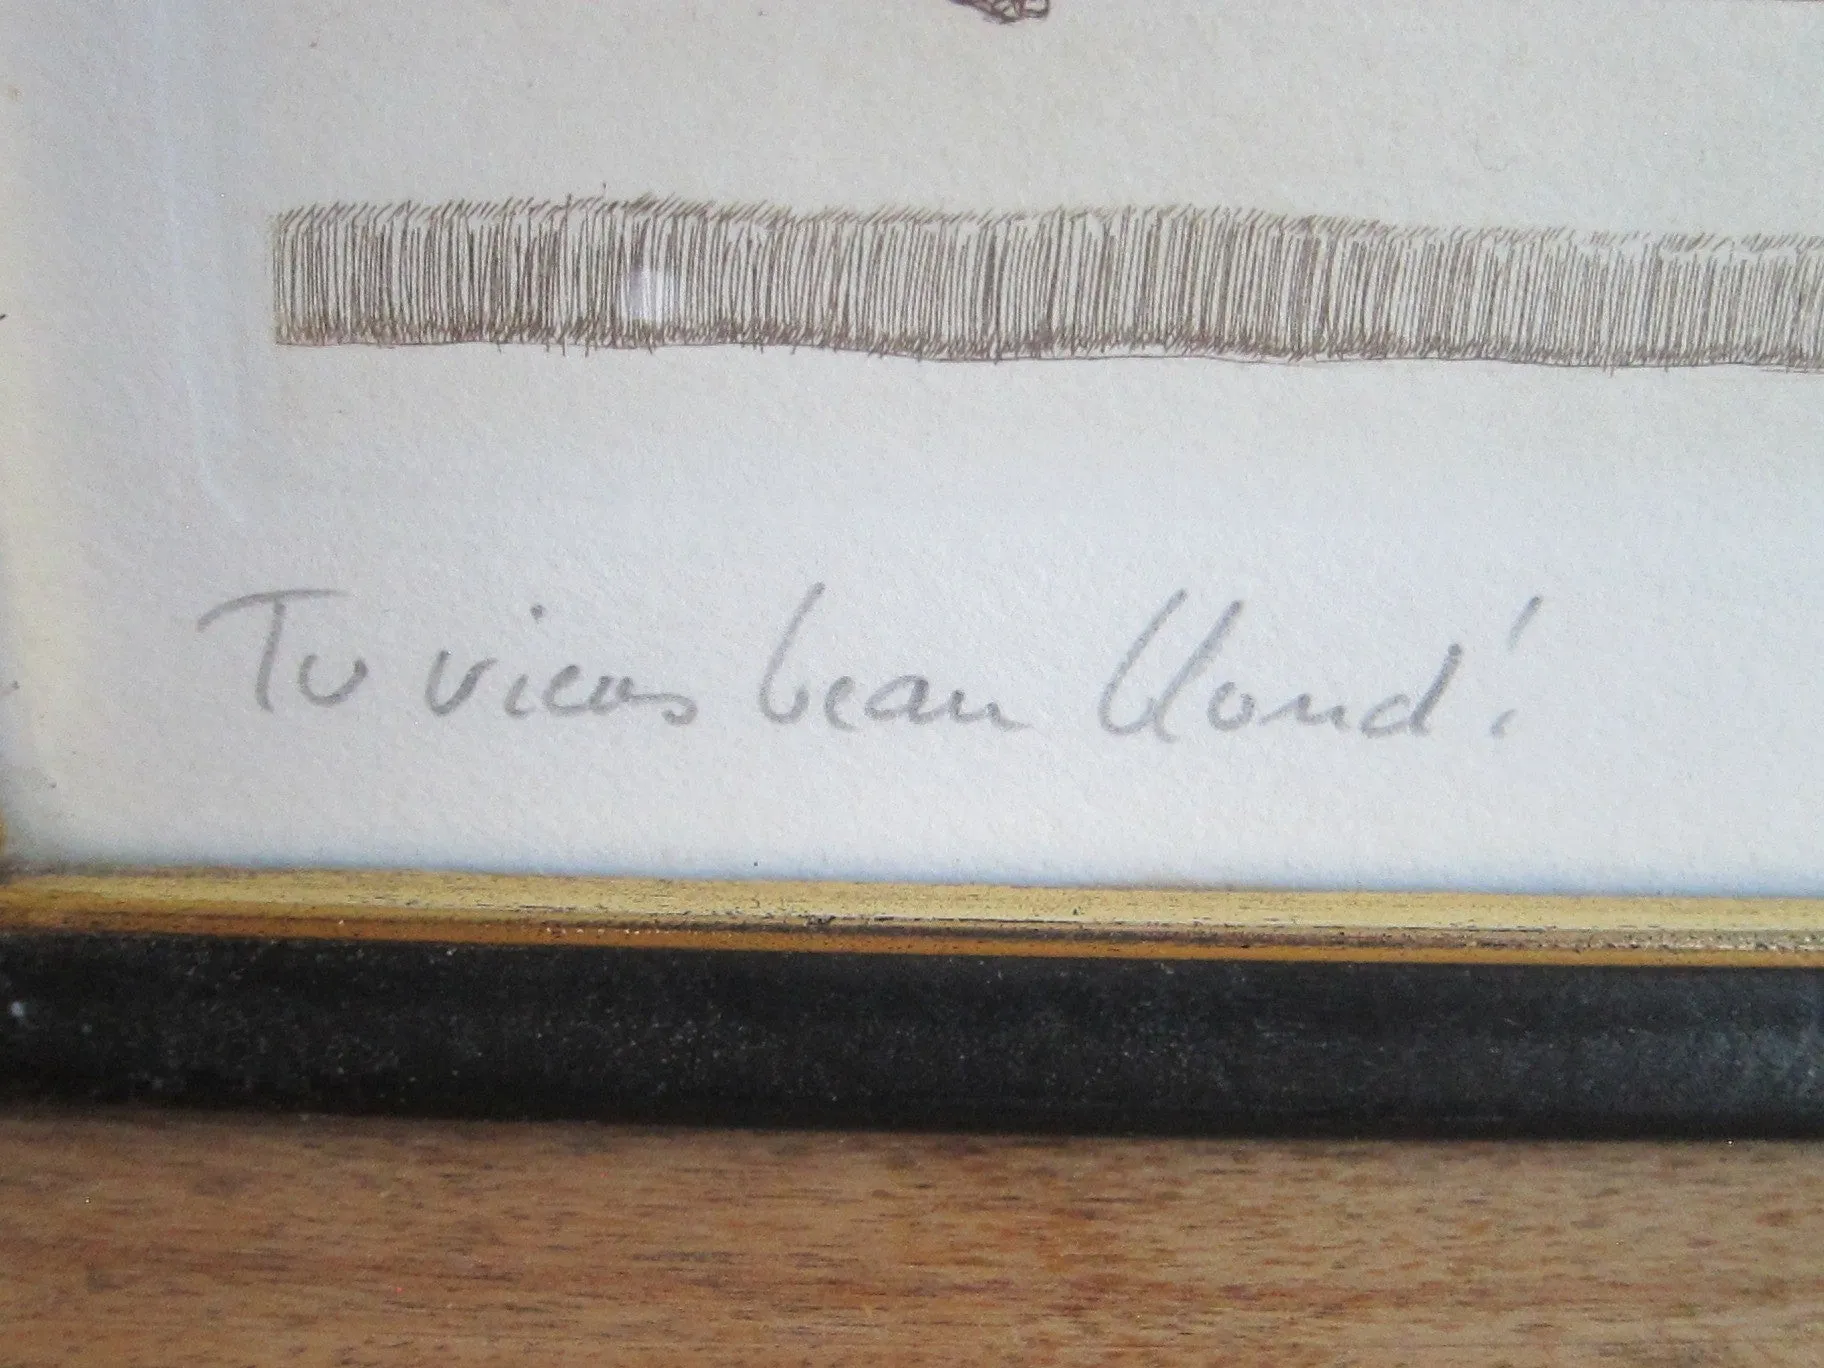 Tu viens beau blond!